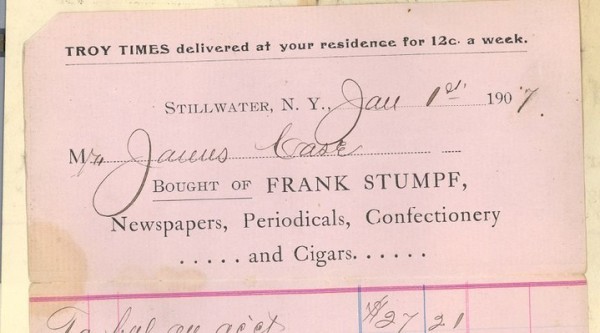 TROY TIMES delivered at your residence for 12c. a week.
STILLWATER, N. Y., Jan 1st 1907.
Mr James Case
BOUGHT OF FRANK STUMPF,
Newspapers, Periodicals, Confectionery
. . . . . and Cigars. . . . . .
To bal on acct $27 21